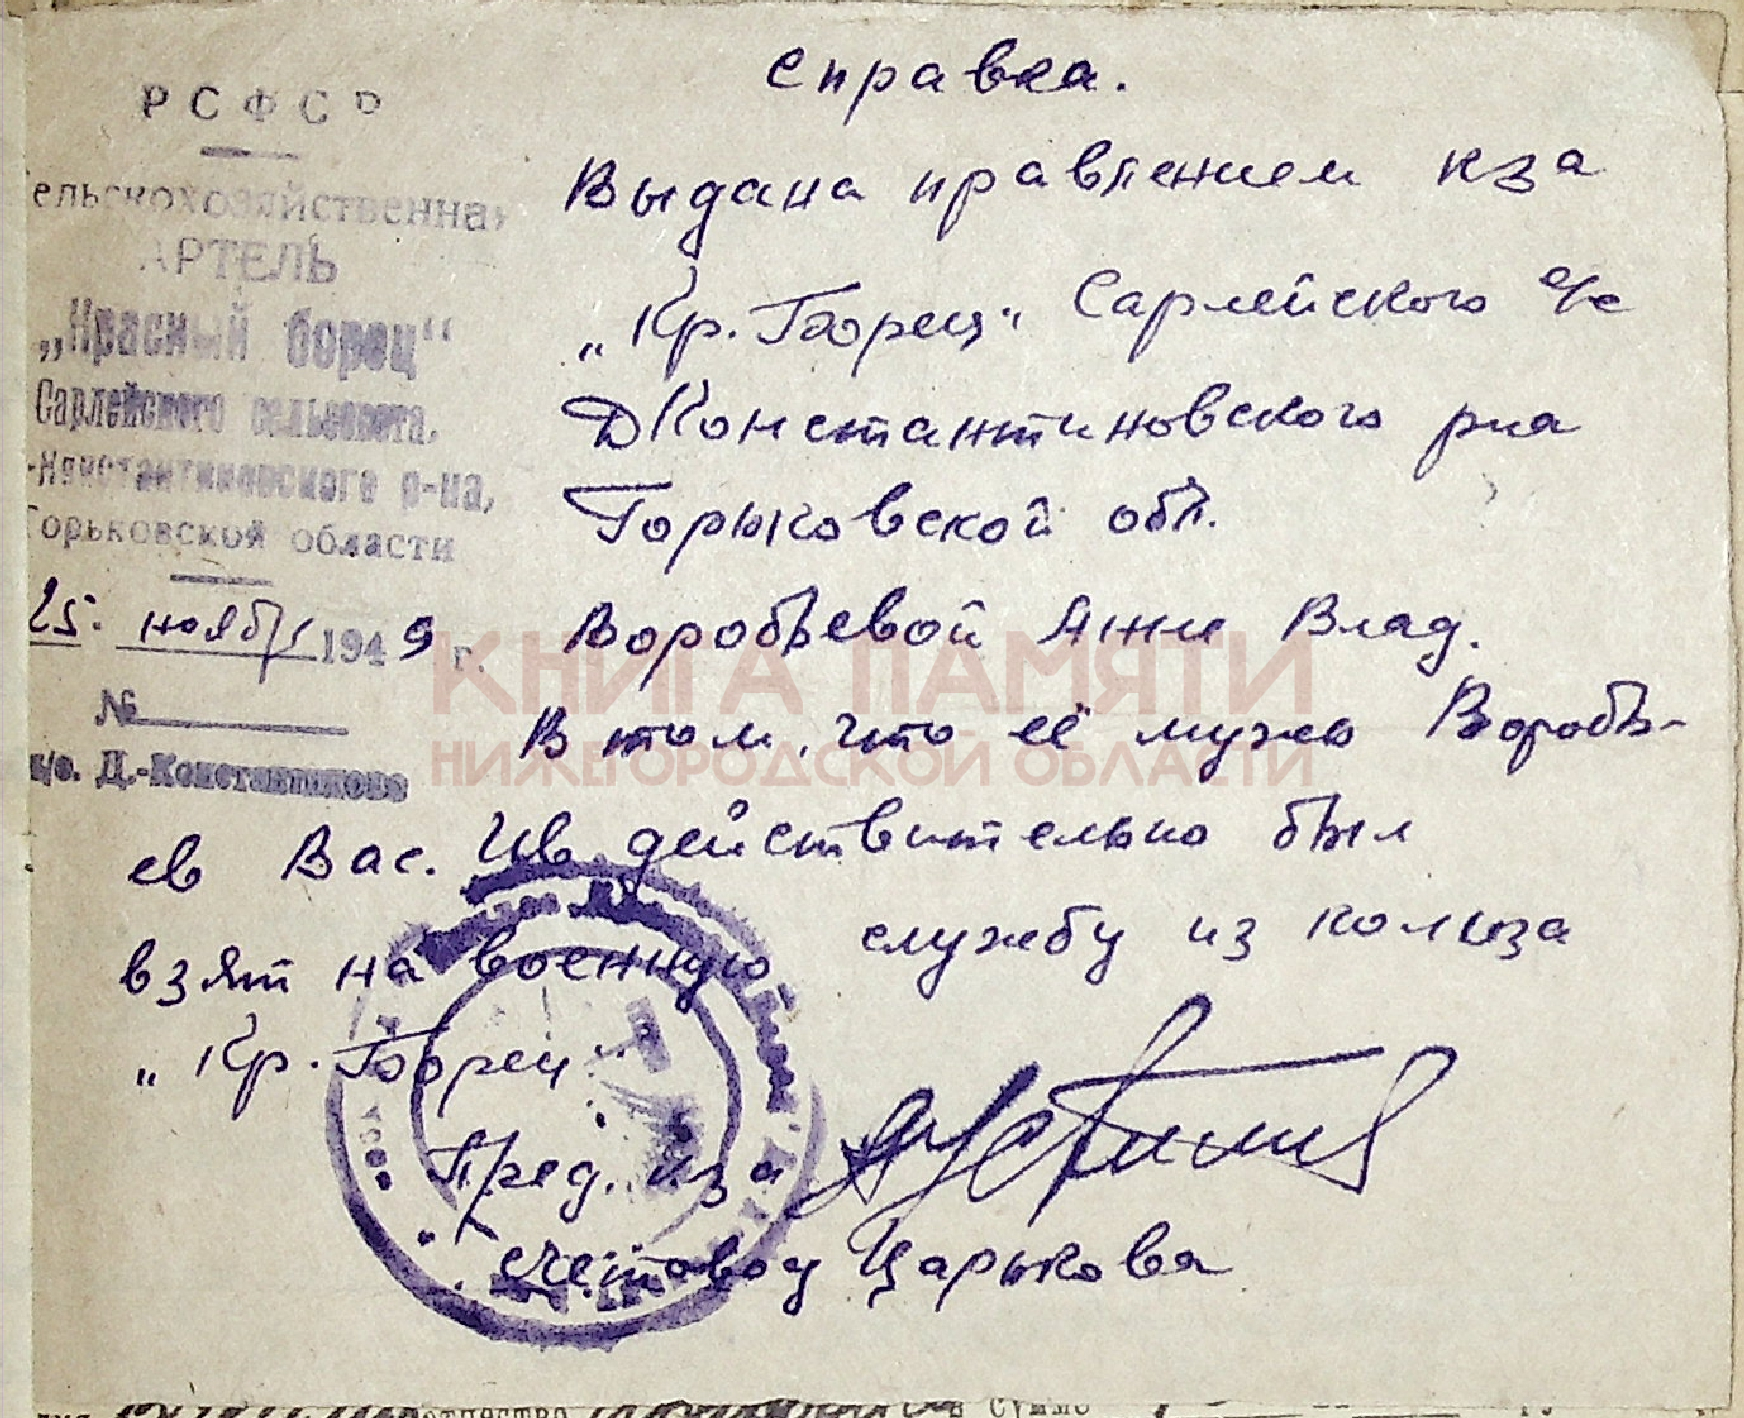 РСФСР
сельскохозяйственная
АРТЕЛЬ
„Красный борец“
Сарлейского сельсовета,
-Константиновского р-на,
Горьковской области
25. нояб 1949 г.
№
п/о. Д.-Константиново
Справка.
Выдана правлением кза
„Кр. Борец" Сарлейского с/с
ДКонстантиновского рна
Горьковской обл.
Воробьевой Анне Влад.
В том, что её мужь Воробь-
ев Вас. Ив. действительно был
взят на военную службу из колхоза
„Кр. Борец"
Пред. кза
счетовод Царькова
КНИГА ПАМЯТИ
НИЖЕГОРОДСКОЙ ОБЛАСТИ
отчество
в сумме